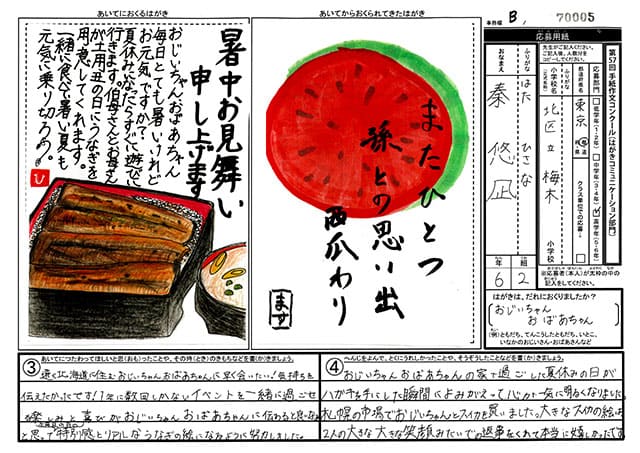 あいてにおくるはがき
暑中お見舞い
申し上げます
おじいちゃんおばあちゃん
毎日とても暑いけれど
お元気ですか？
夏休みになったらすぐに遊びに
行きます。伯母さんとお母さん
が土用丑の日にうなぎを
用意してくれます。
一緒に食べて暑い夏も
元気に乗り切ろう。
ひ
あいてからおくられてきたはがき
またひとつ
孫との思い出
西瓜わり
ます
B
70005
応募用紙
第57回 手紙作文コンクール〈はがきコミュニケーション部門〉
応募部門
低学年(1・2年)
中学年(3・4年)
高学年(5・6年)
ふりがな
学校名
東京
北区立 梅木 小学校
クラス単位での応募→
ふりがな
おなまえ
はた ひさな
秦 悠凪
年 組
6 2
※応募者(本人)が太枠の中の
記入をしてください。
はがきは、だれにおくりましたか?
おじいちゃん
おばあちゃん
(例)ともだち、てんこうしたともだち、いとこ、
いなかのおじいさん・おばあさんなど
③ あいてにつたわってほしいと思(おも)ったことや、その時(とき)のきもちなどを書(か)きましょう。
遠く北海道に住むおじいちゃんおばあちゃんに早く会いたい!気持ちを
伝えたかったです!1年に数回しかないイベントをご一緒に過ごせ
る楽しみと喜びがおじいちゃん おばあちゃんに伝わると良いな
と思って特別感とリアルなうなぎの絵になるように努力しました。
④ へんじをよんで、とくにうれしかったことや、そうぞうしたことなどを書(か)きましょう。
おじいちゃんおばあちゃんの家で過ごした夏休みの日が
ハガキを手にした瞬間によみがえって心が一気に明るくなりました。
札幌の市場でおじいちゃんとスイカを買いました。大きなスイカの絵は
2人の大きな大きな笑顔みたいでの返事をくれて本当に嬉しかったです